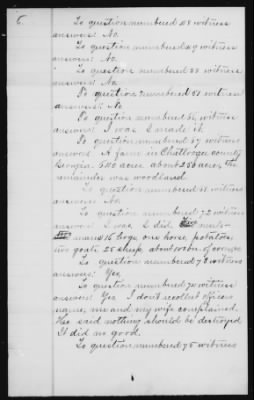 5.
To question numbered 48 witness
answers: No.
To question numbered 49 witness
answers: No.
To question numbered 50 witness
answers: No
To question numbered 51 witness
answers: No
To question numbered 52 witness
answers: I was. I made it
To question numbered 57 witness
answers A farm in Chattooga county
Georgia 540 acres about 250 acres, the
remainder was woodland
To question numbered witness
answers No.
To question numbered 72 witness
answer I was I did
mares 16 hogs one horse potatoes
two goats 25 sheep about of forage
To question numbered 73 witness
answers, Yes
To question numbered witness
answers Yes I don't recollect officers
name, me and my wife complained.
He said nothing should be destroyed
It did no good.
To question numbered 75 witness